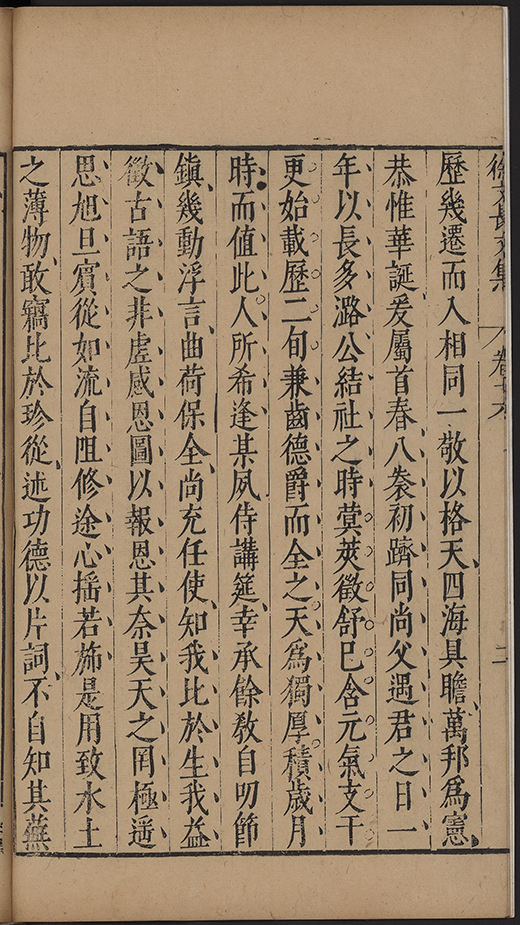 徐文長文集 卷十六 二
歷幾遷而入相同一敬以格天四海具瞻萬邦爲憲
恭惟華誕爰屬首春八袠初躋同尚父遇君之日一
年以長多潞公結社之時蓂莢徵舒已含元氣支干
更始載歷二旬兼齒德爵而全之天爲獨厚積歲月
時而值此人所希逢某夙侍講筵幸承餘敎自叨節
鎮幾動浮言曲荷保全尚充任使知我比於生我益
徵古語之非虛感恩圖以報恩其奈昊天之罔極遥
思旭旦賓從如流自阻修途心揺若斾是用致水土
之薄物敢竊比於珍從述功德以片詞不自知其蕪